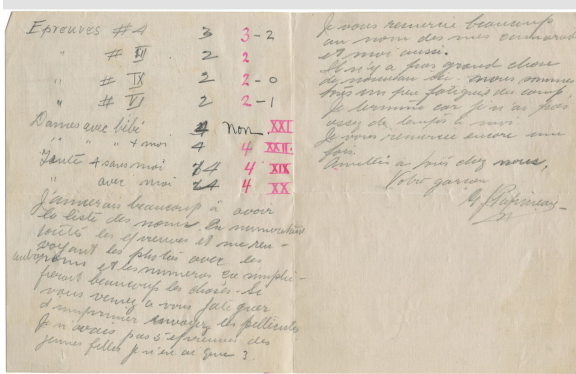 Epreuves #4 3 3-2
" # III 2 2
" # IX 2 2-0
" # VI 2 2-1
Dames avec bébé 4 non. XXI
" " " + moi 4 4 XXII.
Tante + sans moi 4 4 XIX
" avec moi 4 4 XX
J'aimerais beaucoup à avoir
la liste des noms. En numerotant
toutes les epreuves et me ren-
voyant les photos avec les
noms et les numeros ça simpli-
ferait beaucoup les choses. Si
vous venez à vous fatiguer
d'imprimer envoyez les pellicules
Je n'avais pas d'epreuves des
jeunes filles je n'en ai que 3.
Je vous remercie beaucoup
au nom des mes camarades
et moi aussi.
Il n'y a pas grand chose
de nouveau ici. nous sommes
tous un peu fatigués du camp.
Je termine car je n'ai pas
assez de temps à moi.
Je vous remercie encore une
fois
Amitiés à tous chez nous,
Votre garçon
G. Papineau